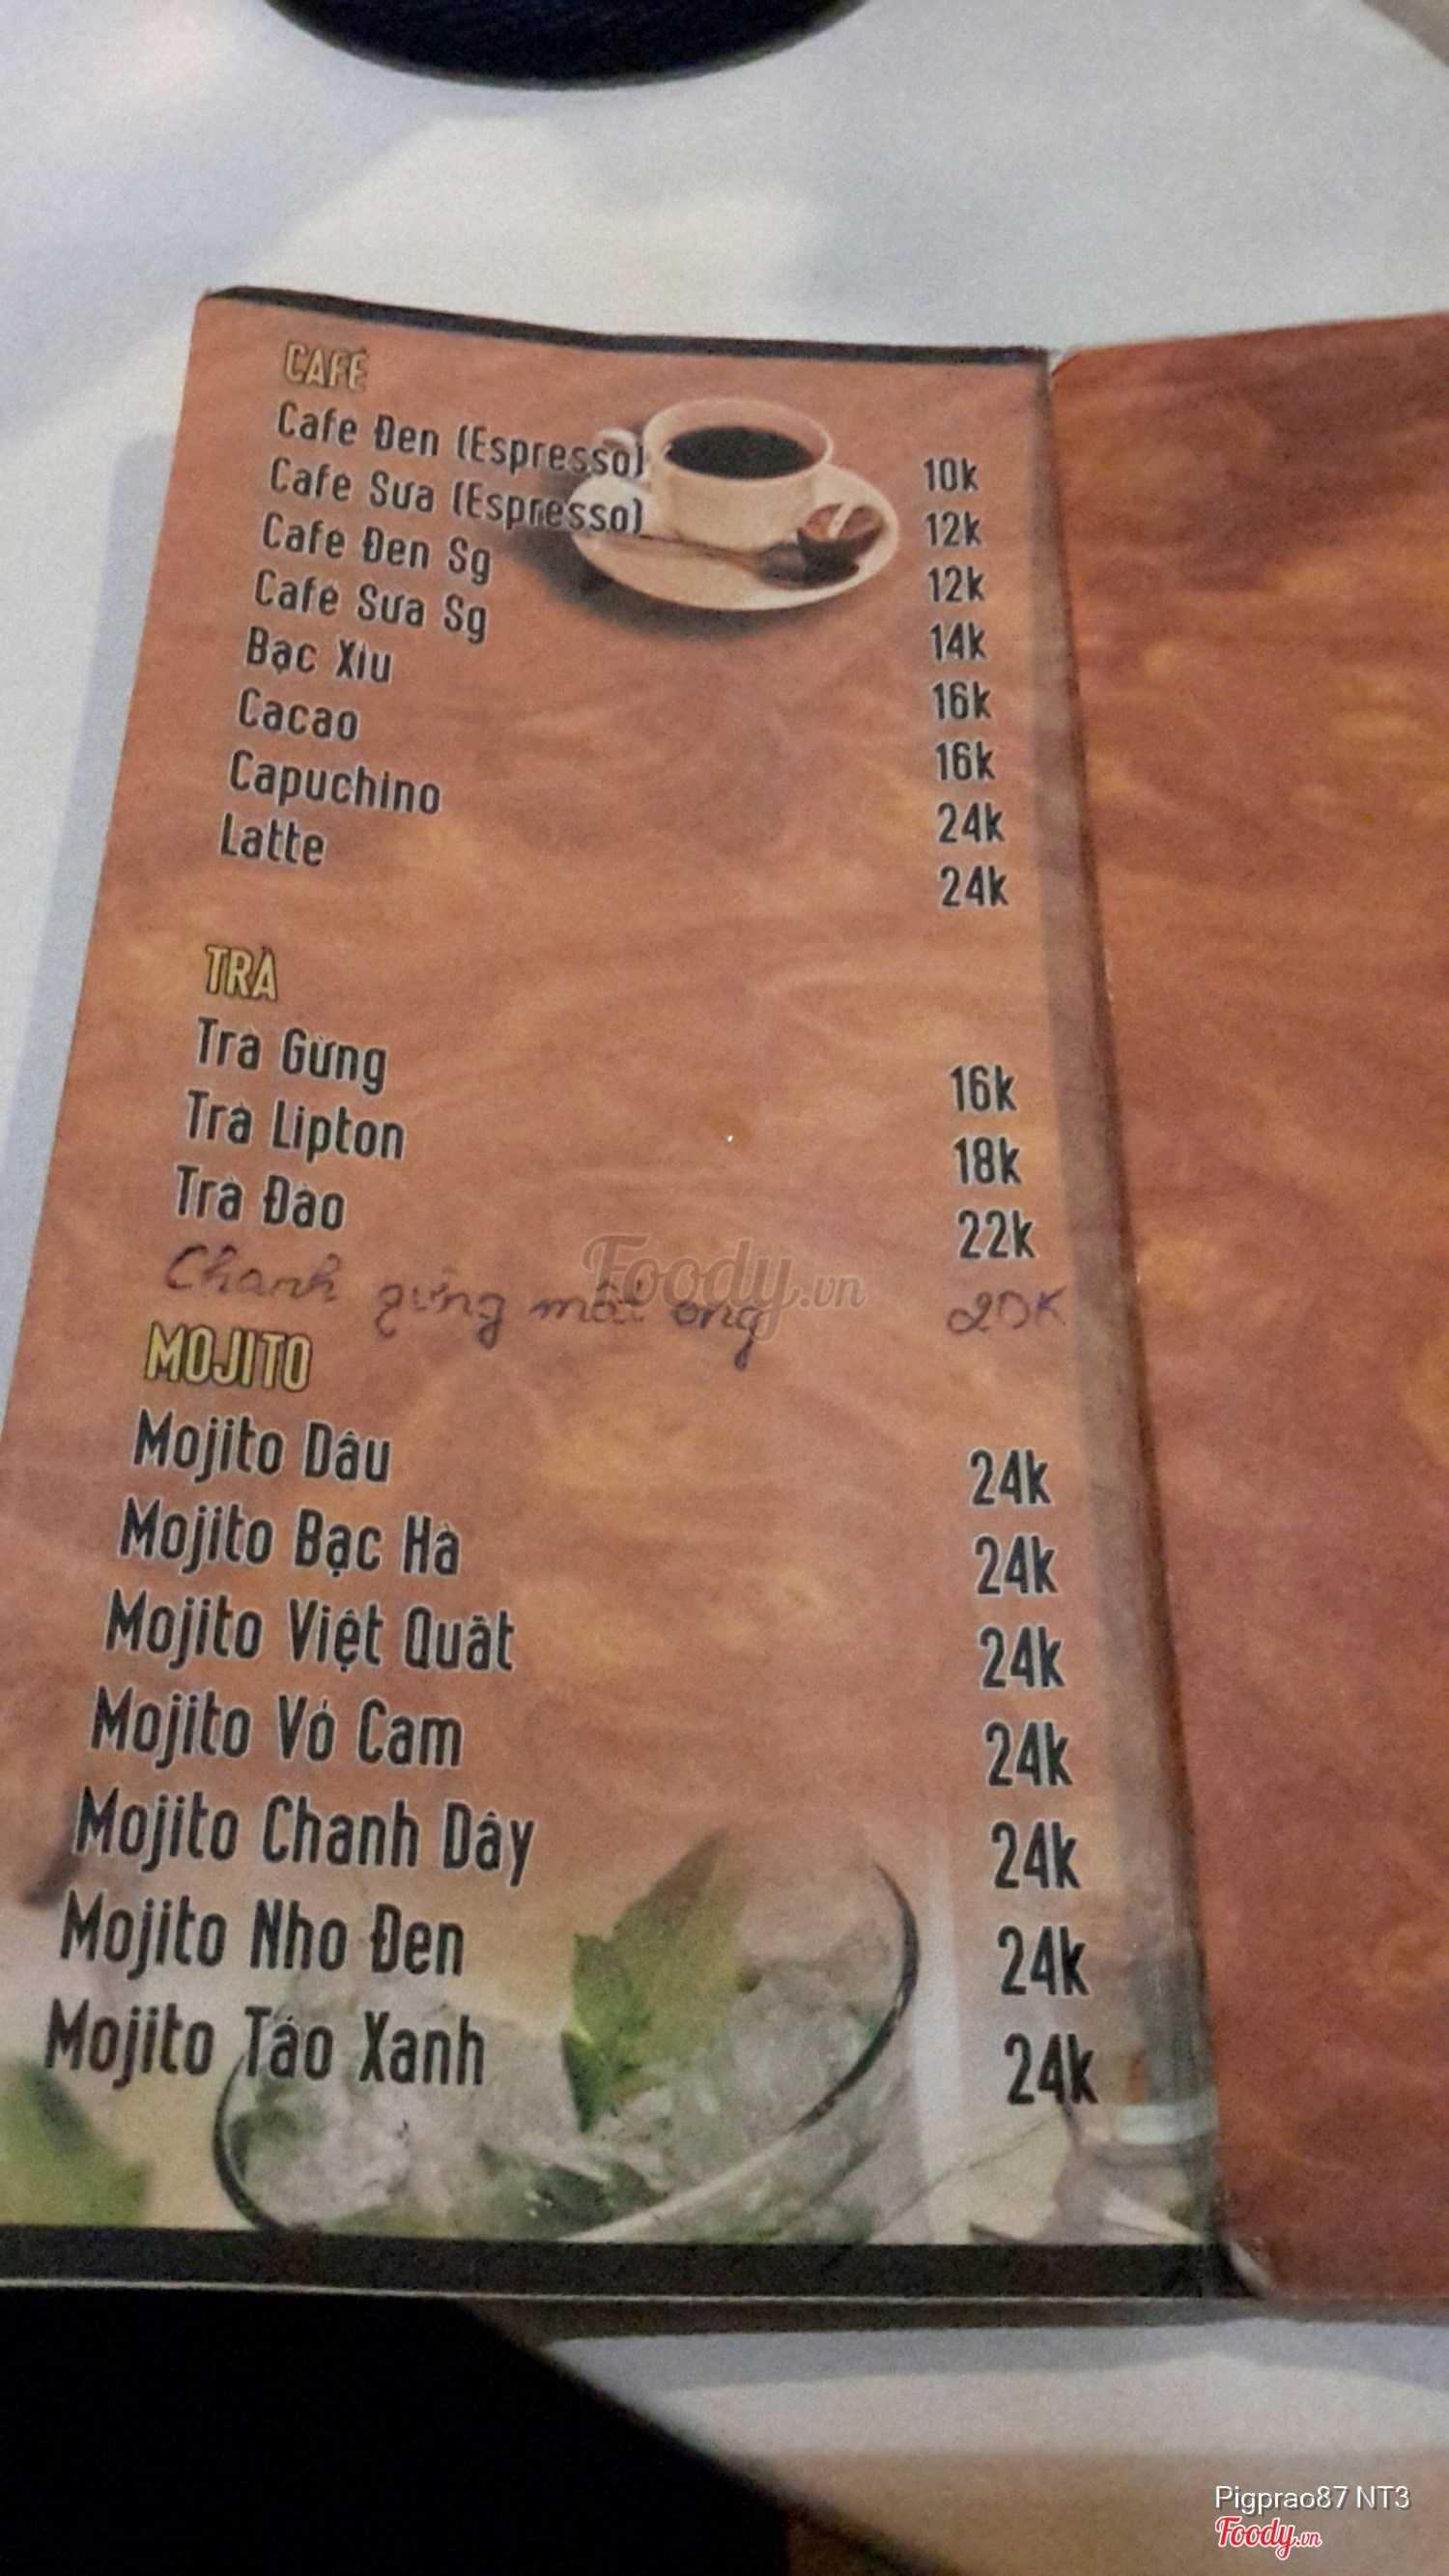 CAFÉ
Café Đen (Espresso) 10k
Café Sữa (Espresso) 12k
Café Đen Sg 12k
Café Sữa Sg 14k
Bạc Xỉu 16k
Cacao 16k
Capuchino 24k
Latte 24k
TRÀ
Trà Gừng 16k
Trà Lipton 18k
Trà Đào 22k
Chanh gừng mật ong 20K
Foody.vn
MOJITO
Mojito Dâu 24k
Mojito Bạc Hà 24k
Mojito Việt Quất 24k
Mojito Vỏ Cam 24k
Mojito Chanh Dây 24k
Mojito Nho Đen 24k
Mojito Táo Xanh 24k
Pigprao87 NT3
Foody.vn